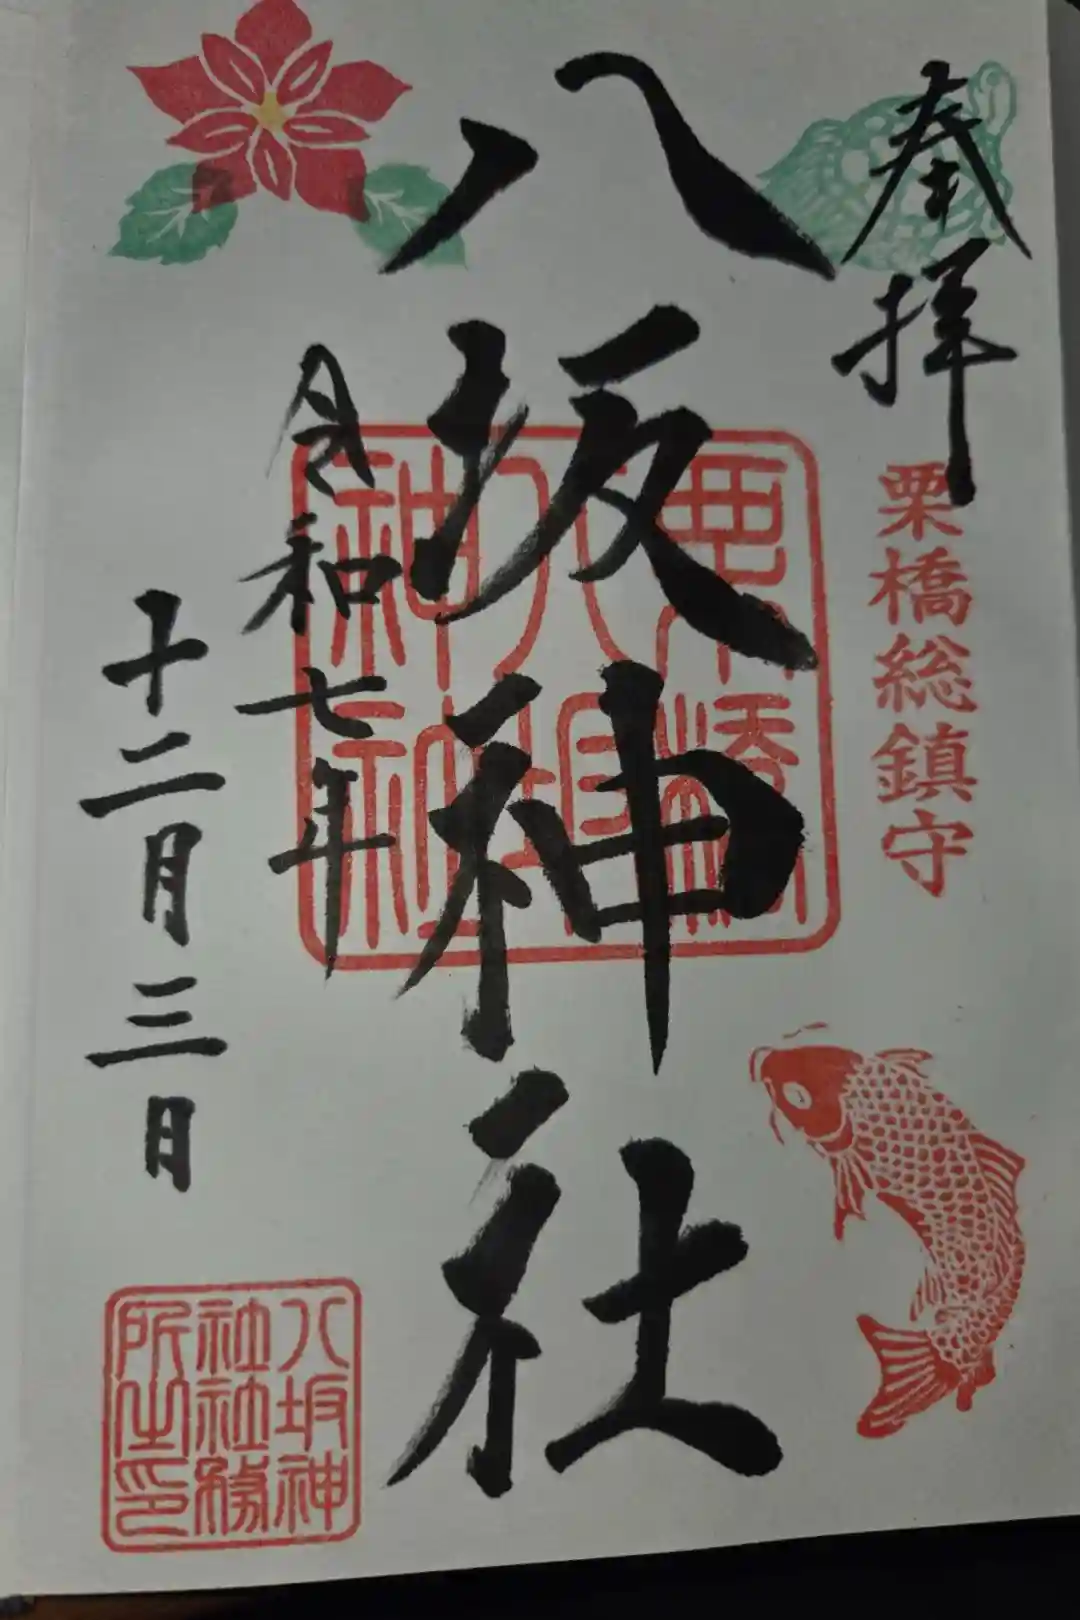 奉拝
栗橋総鎮守
八坂神社
栗橋
八坂
神社
令和七年
十二月三日
八坂神
社社務
所之印